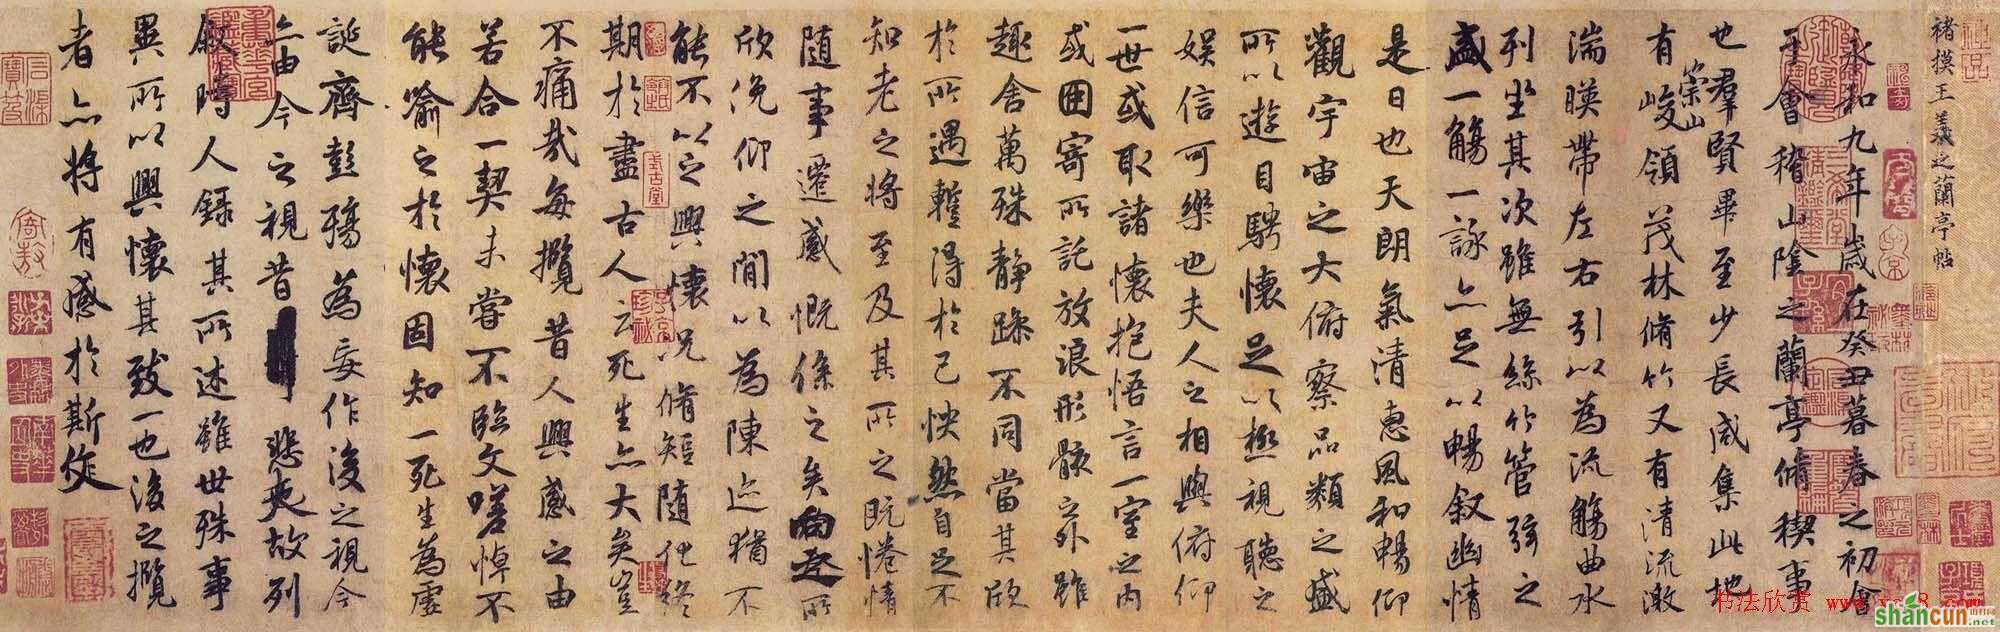 褚摸王羲之蘭亭帖
永和九年歲在癸丑暮春之初會
于會稽山陰之蘭亭脩稧事
也羣賢畢至少長咸集此地
有崇山峻領茂林脩竹又有清流激
湍暎帶左右引以為流觴曲水
列坐其次雖無絲竹管弦之
盛一觴一詠亦足以暢叙幽情
是日也天朗氣清惠風和暢仰
觀宇宙之大俯察品類之盛
所以遊目騁懷足以極視聽之
娛信可樂也夫人之相與俯仰
一世或取諸懷抱悟言一室之內
或因寄所託放浪形骸之外雖
趣舍萬殊静躁不同當其欣
於所遇暫得於己怏然自足不
知老之將至及其所之既惓情
隨事遷感慨係之矣向之所
欣俛仰之間以為陳迹猶不
能不以之興懷況脩短隨化終
期於盡古人云死生亦大矣豈
不痛哉每攬昔人興感之由
若合一契未嘗不臨文嗟悼不
能喻之於懷固知一死生為虛
誕齊彭殤為妄作後之視今
亦由今之視昔悲夫故列
叙時人錄其所述雖世殊事
異所以興懷其致一也後之攬
者亦將有感於斯文
書法欣賞
shancun.net